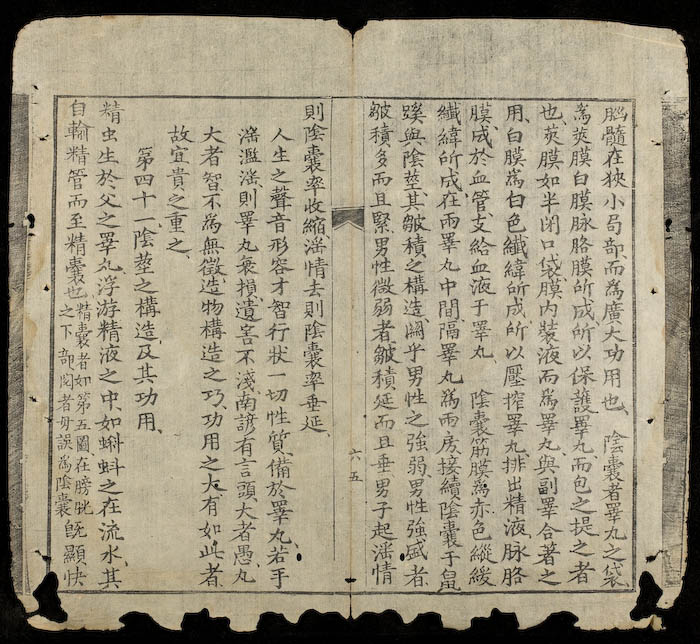 脳髓在狹小局部而爲廣大功用也、 陰囊者睪丸之袋
爲莢膜白膜脉胳膜所成所以保護睪丸而包之提之者
也、莢膜如半閉口袋膜内装液而爲睪丸與副睪合著之
用、白膜爲白色纖緯所成所以壓搾睪丸排出精液、脉胳
膜成於血管、支給血液于睪丸、 陰囊筋膜爲赤色縱緩
纖緯所成在兩睪丸中間隔睪丸爲兩房接續陰囊于鼠
蹊與陰莖、其皺積之構造、關乎男性之強弱、男性強盛者、
皺積多而且緊、男性微弱者皺積延而且垂、男子起淫情
則陰囊率收縮、淫情去則陰囊率垂延、
人生之聲音形容才智行狀一切性質、備於睪丸、若手
淫濫淫、則睪丸衰損、遺害不淺、南諺有言、頭大者愚、丸
大者智、不爲無徵、造物構造之巧、功用之大、有如此者、
故宜貴之重之、
第四十一、陰莖之構造、及其功用、
精虫生於父之睪丸、浮游精液之中、如蝌蚪之在流水、其
自輸精管而至精囊也、精囊者如第五圖、在膀胱之下部、閱者毋誤爲陰囊 旣顯快
六五